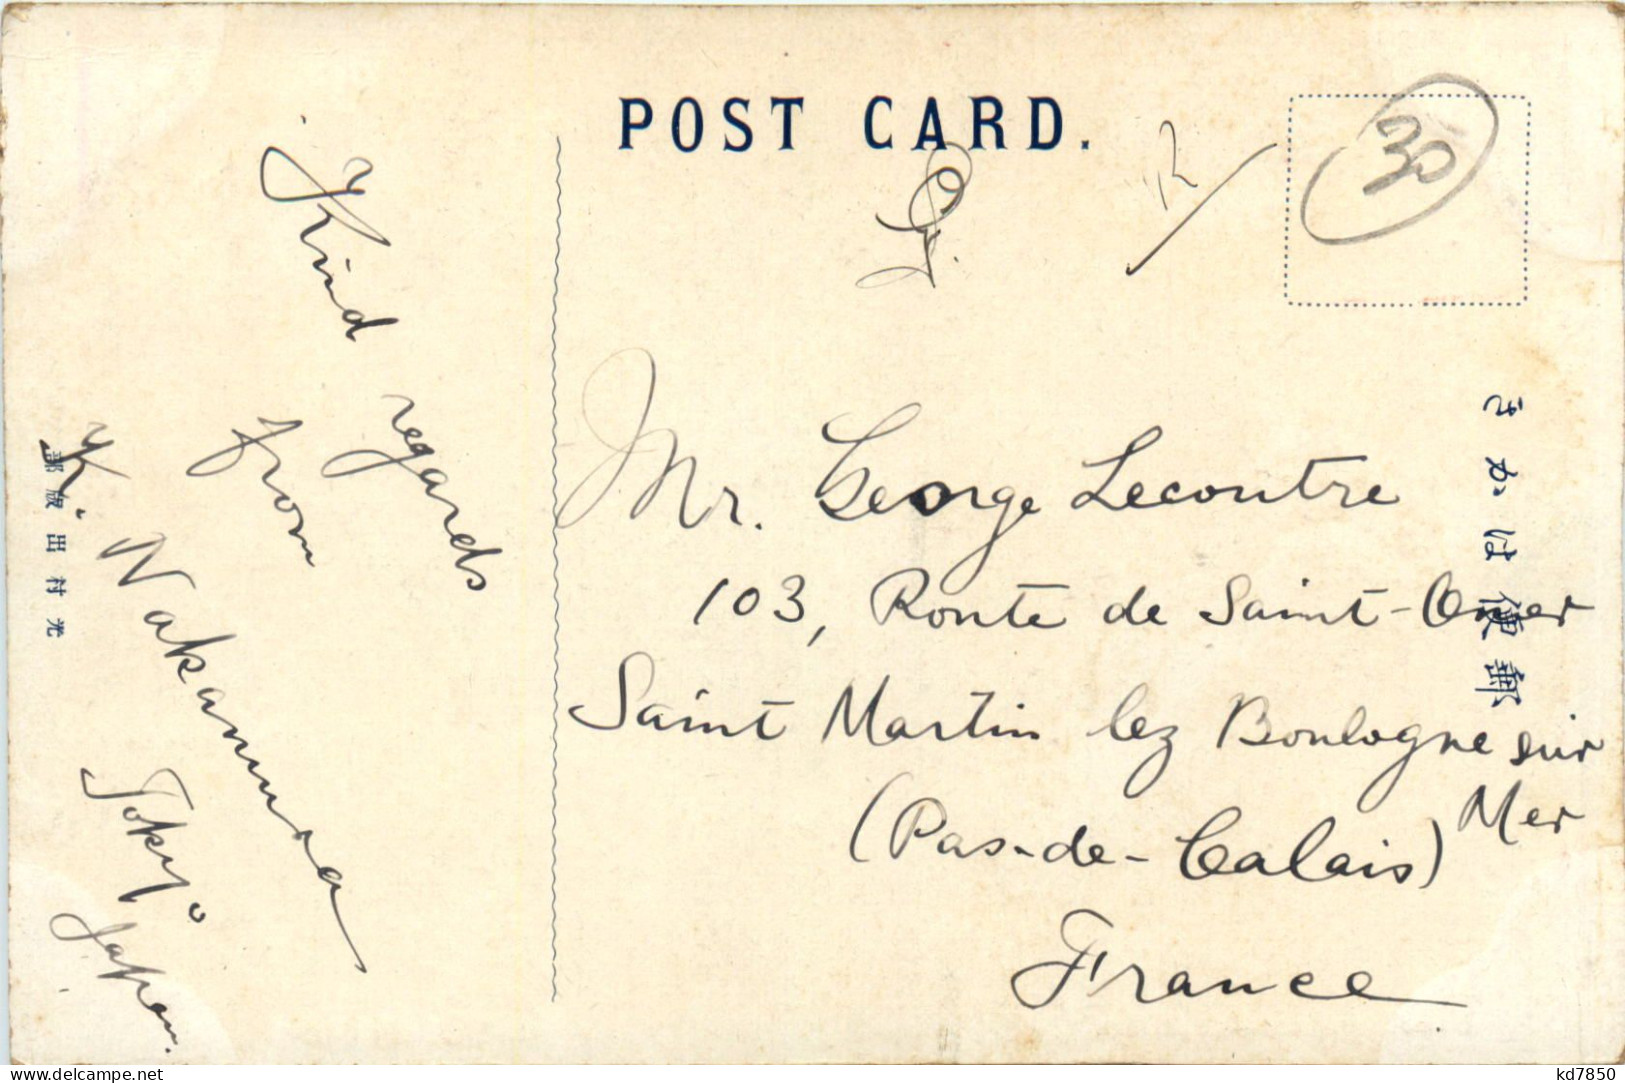 POST CARD.
30
Kind regards
from
K. Nakamura
Tokyo
Japan.
Mr. George Lecontre
103, Route de Saint-Omer
Saint Martin lez Boulogne sur
Mer
(Pas-de-Calais)
France
郵便はかき
光村出版部
www.delcampe.net
kd7850